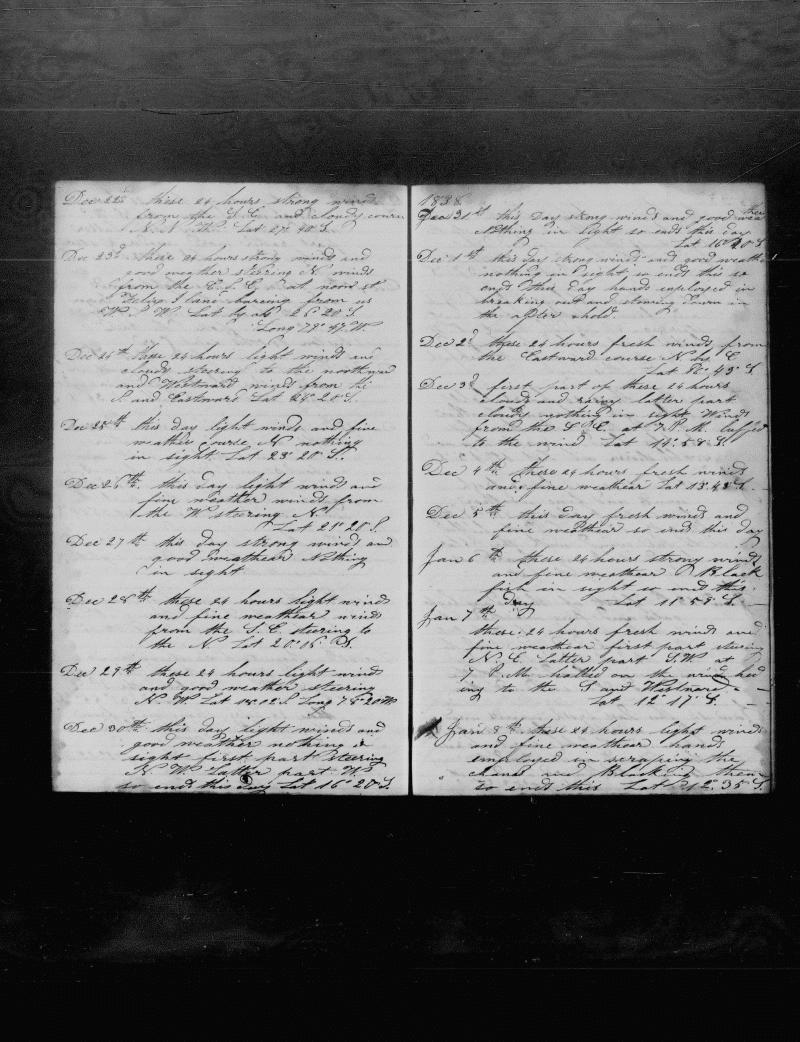 Dec 22d these 24 hours strong winds
from the S. E. and cloudy course
N. N. W. Lat 27° 40' S.
Dec 23d these 24 hours strong winds and
good weather steering N winds
from the E. S. E. at noon st
Felix Iland bareing from us
W. S. W. Lat by ob 26° 20 S.
Long 79° 47 W.
Dec 24th these 24 hours light winds and
clouds steering to the northwar
and Westward wind from the
S and Eastward Lat 20' S.
Dec 25th this day light winds and fine
weather course N nothing
in sight Lat 23° 20' S.
Dec 26th this day light winds and
fine weather winds from
the W steering N
Lat 21° 20 S.
Dec 27th this day strong winds and
good weathear Nothing
in sight
Dec 28th these 24 hours light winds
and fine weathear winds
from the S. E. steering to
the N Lat 20° 16' S.
Dec 29th these 24 hours light winds
and good weather steering
N W Lat 18° 12 S Long W
Dec 30th this day light winds and
good weather nothing in
sight first part steering
N W. latter part W.
so ends this day Lat 16° 20' S.
1838
Dec 31st this day strong winds and good weather
Nothing in sight so ends this day
Lat 16 20' S
Dec 1st this day strong winds and good weathe
nothing in sight so ends this so
ends this day hands employed in
breaking out and stowing down in
the after hold.
Dec 2d these 24 hours fresh winds from
the Eastward course N by E
Lat 43' S.
Dec 3d first part of these 24 hours
cloudy and rainy latter part
cloudy nothing in sight Winds
from the S. E. at 7. P. M. luffed
to the wind Lat 14° 58' S.
Dec 4th these 24 hours fresh winds
and fine weathear Lat 13° 48' S.
Dec 5th this day fresh winds and
fine weathear so ends this day
Jan 6th these 24 hours strong winds
and fine weathear Black
fish in sight so ends this
day Lat 11° 53' S.
Jan 7th
these 24 hours fresh winds and
fine weathear first part steering
N. E. latter part S. W. at
7. P. M. halled on the wind hed
ing to the S and Westward.
Lat 12° 17' S.
Jan 8th these 24 hours light winds
and fine weathear hands
employed in scraping the
chanes and Blacking them
so ends this Lat 12° 35' S.